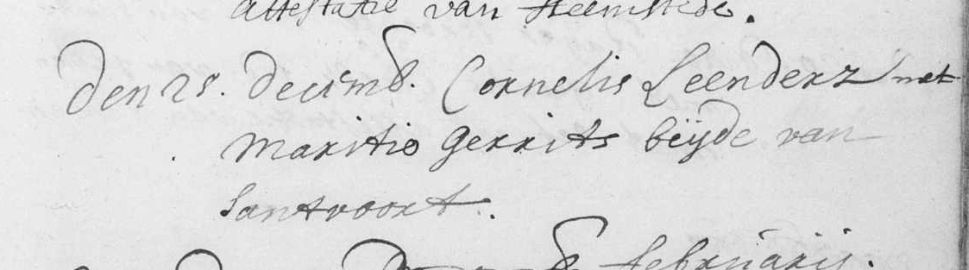 Attestatie van Heemstede.
Den 25. decemb. Cornelis Leenderz met
Maritio Gerrits beijde van
Santvoort.
februarij.